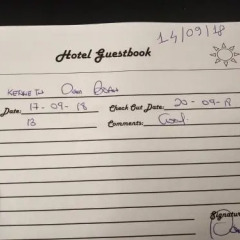 14/09/18
Hotel Guestbook
KENNETH
Date: 17-09-18 Check Out Date: 20-09-18
13 Comments:
Signature